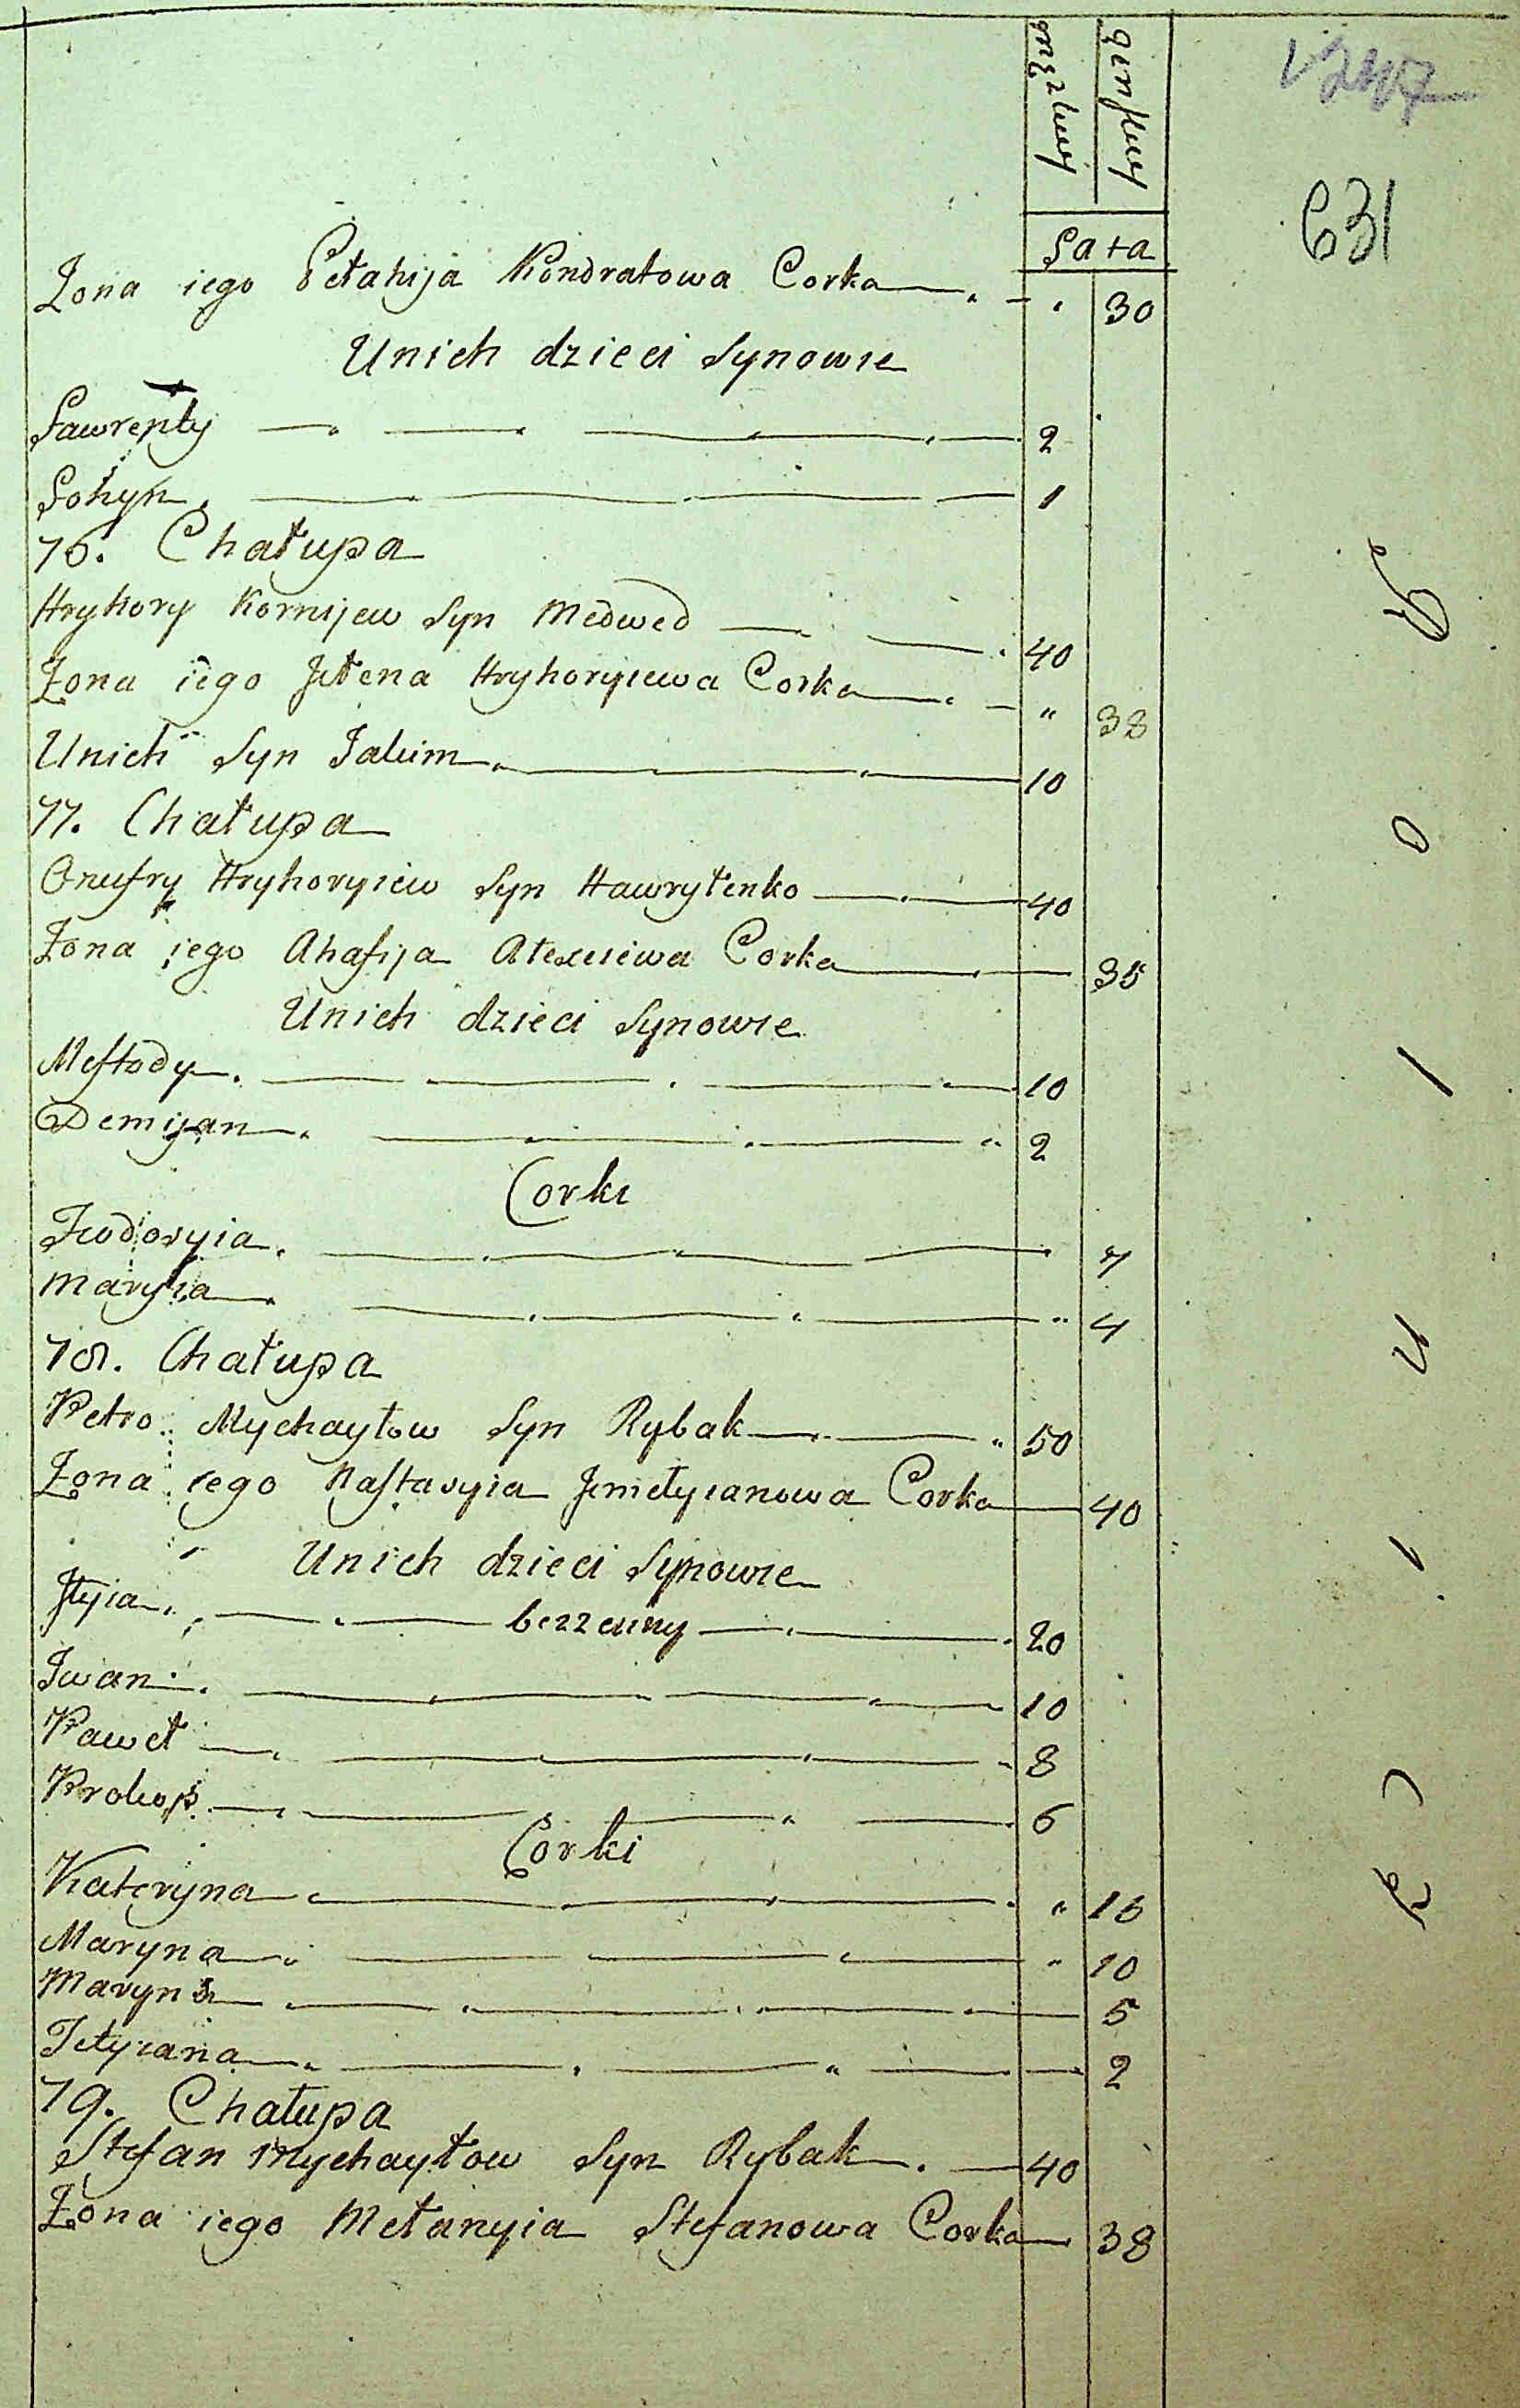 męzkiey żenskiey
631
Lata
Żona iego Pełahija Kondratowa Corka " 30
Unich dzieci Synowie
Ławrenty 2
Lohyn 1
76. Chałupa
Hryhory Kornijew Syn Medwed 40
Żona iego Jełena Hryhoryiewa Corka " 38
Unich Syn Jakim 10
77. Chałupa
Onufry Hryhoryiew Syn Hawryłenko 40
Żona iego Ahafija Alexeiewa Corka 35
Unich dzieci Synowie
Meftody 10
Demijan 2
Corki
Fwdoryia 7
Maryia 4
78. Chałupa
Petro Mychayłow Syn Rybak 50
Żona iego Nastasyia Jemełyianowa Corka 40
Unich dzieci Synowie
Jłyia bezzenny 20
Jwan 10
Paweł 8
Prokop 6
Corki
Kateryna " 16
Maryna " 10
Maryna 5
Tetyiana 2
79. Chałupa
Stefan Mychayłow Syn Rybak 40
Żona iego Mełanyia Stefanowa Corka 38